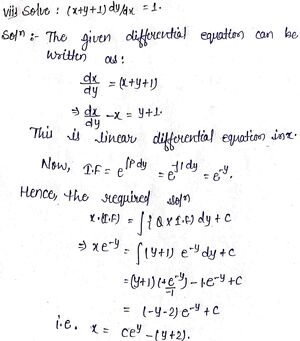 viii) Solve : (x+y+1) dy/dx = 1.
Solⁿ :- The given differential equation can be
written as:
dx/dy = (x+y+1)
⇒ dx/dy - x = y+1.
This is linear differential equation in x.
Now, I.F = e^∫P dy = e^∫-1 dy = e^-y.
Hence, the required solⁿ
x.(I.F) = ∫{Q X I.F} dy + C
⇒ x e^-y = ∫(y+1) e^-y dy + C
= (y+1)(+e^-y/-1) - 1.e^-y + C
= (-y-2) e^-y + C
i.e. x = ce^y - (y+2).